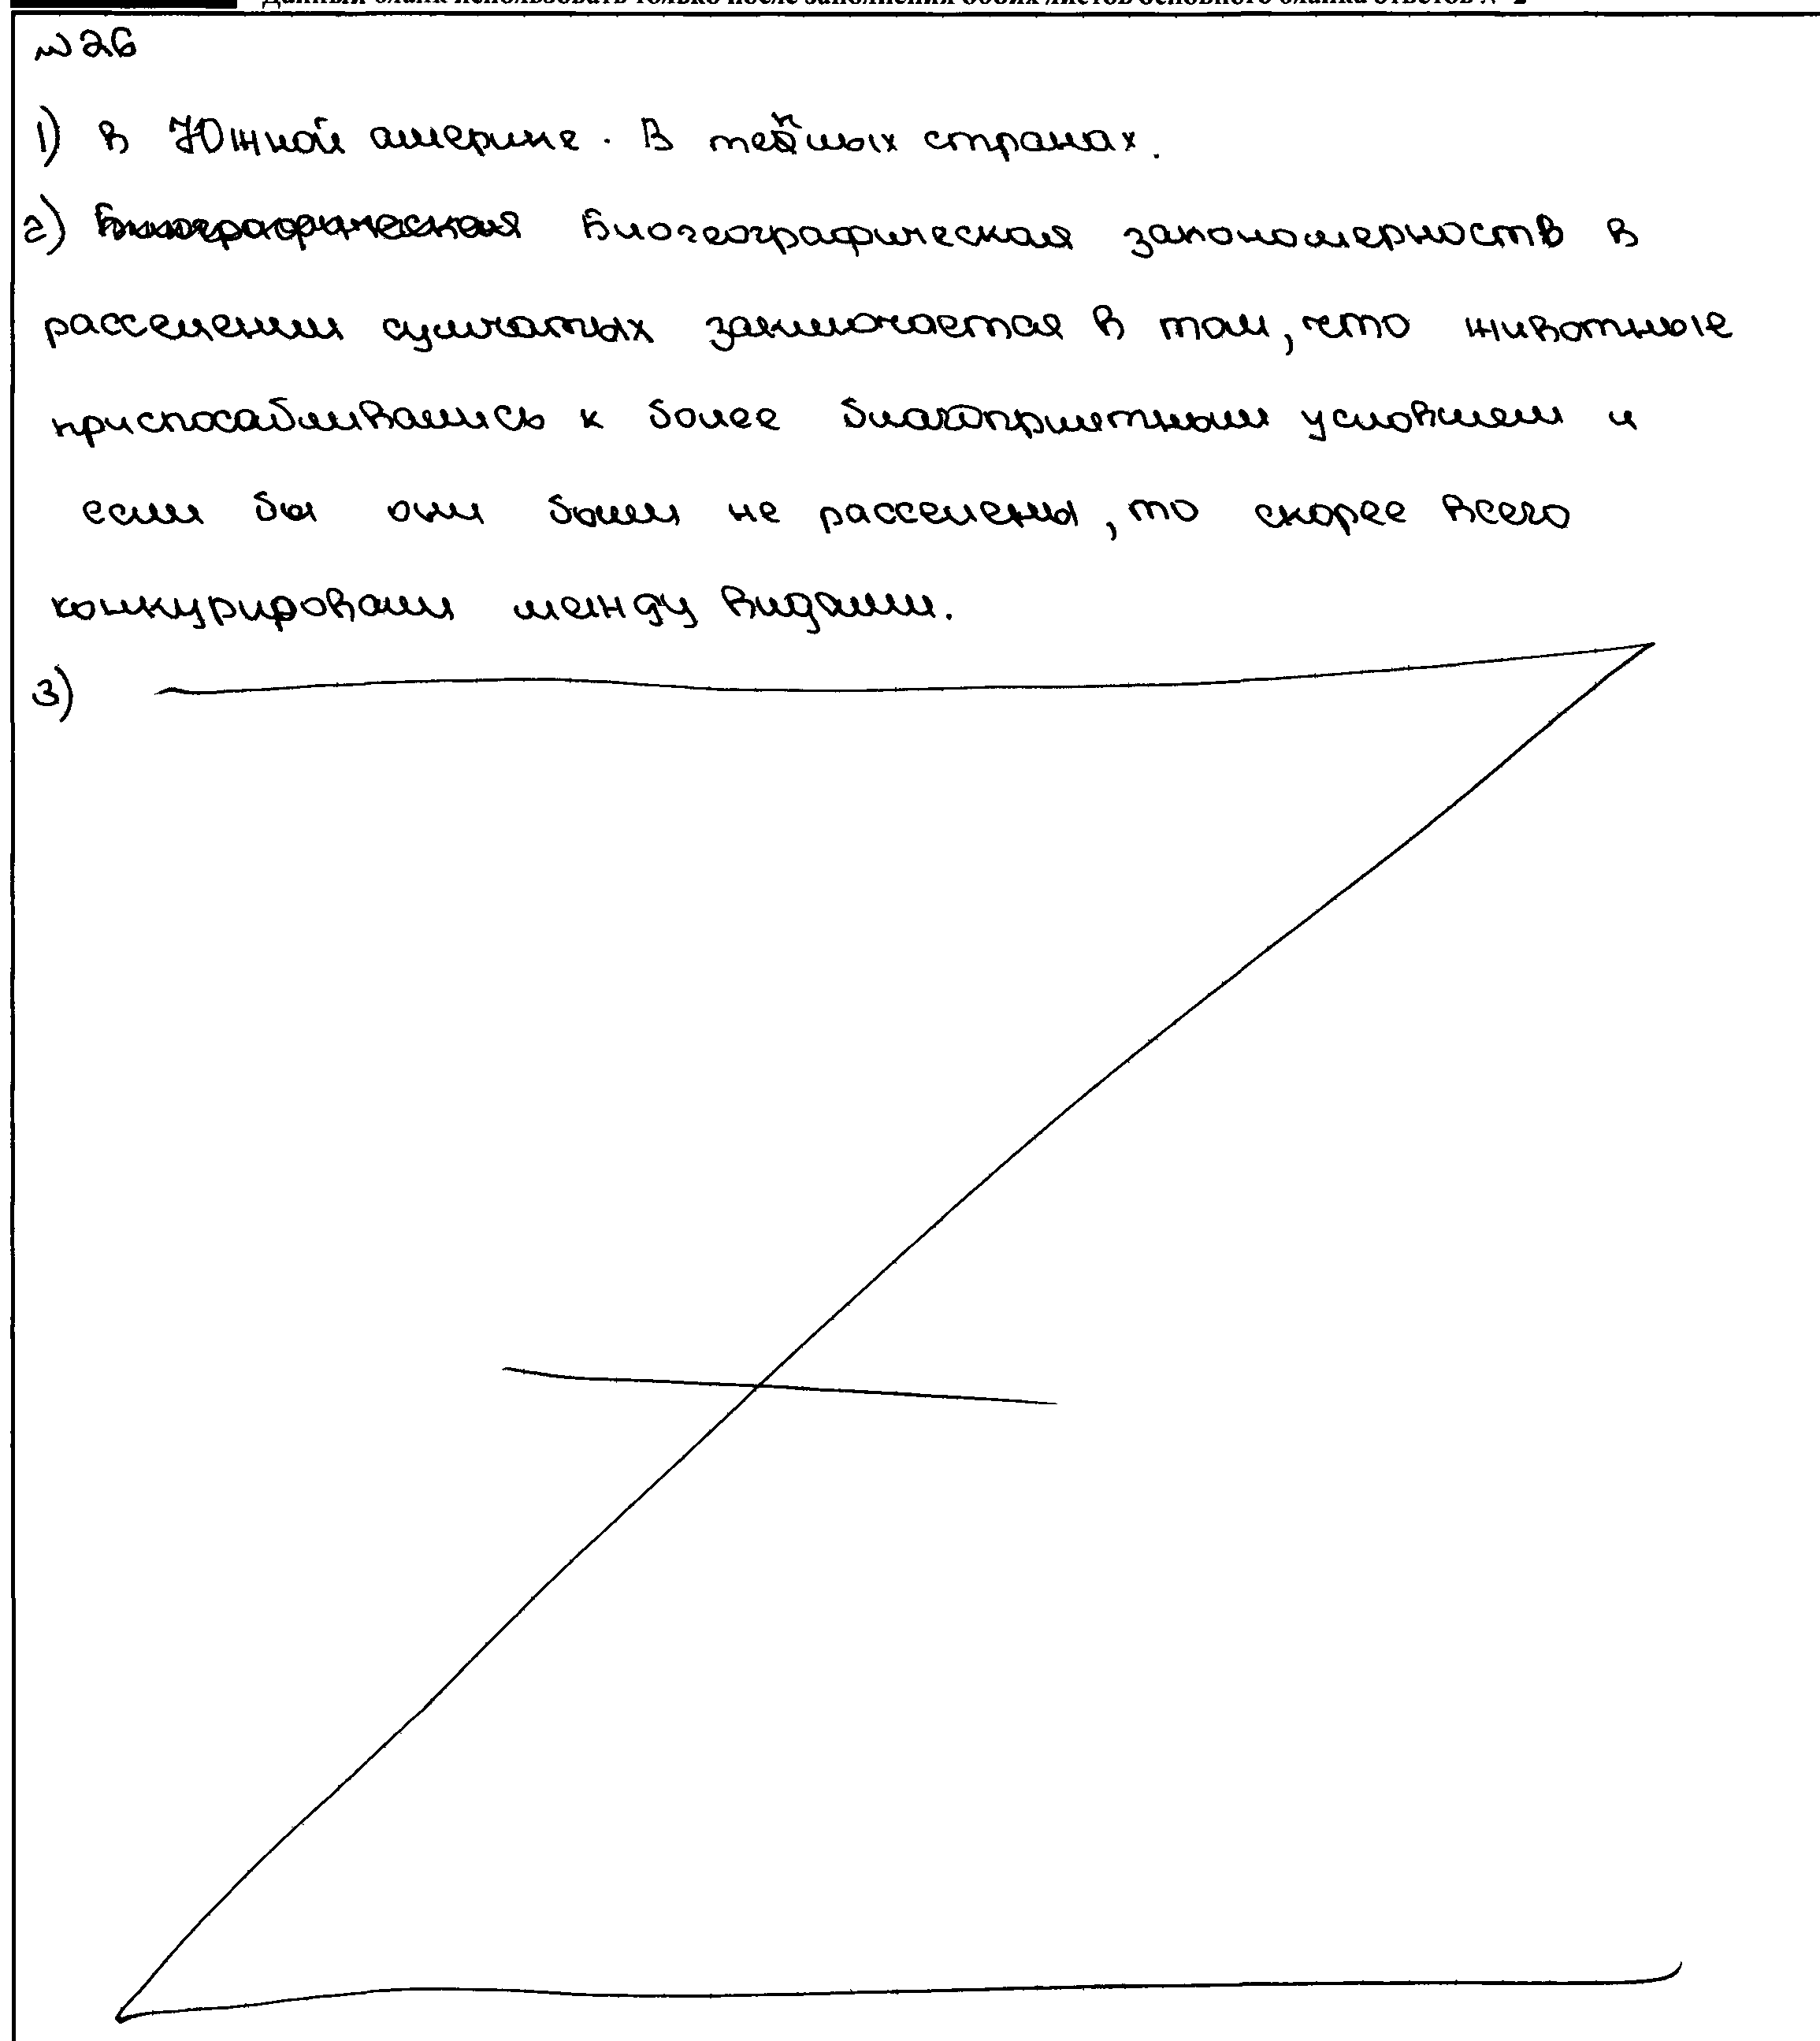 Данный бланк использовать только после заполнения обоих листов основного бланка ответов № 2
№26
1) в Южной америке. В теплых странах.
2) Биогеографическая закономерность в
расселении сумчатых заключается в том, что животные
приспосабливались к более благоприятным условием и
если бы они были не расселены, то скорее всего
конкурировали между видами.
3)